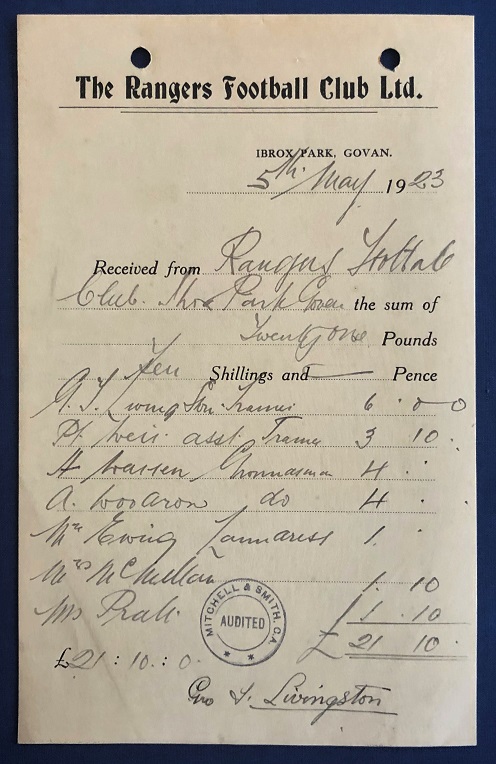 The Rangers Football Club Ltd.
IBROX PARK, GOVAN.
5th. May 1923
Received from Rangers Footbale
Club. Ibrox Park Govan the sum of
Twenty one Pounds
Ten Shillings and — Pence
G. T. Livingston Trainer 6 . 0 - 0
Weir asst. Trainer 3 10 .
4 . .
A. do 4 .
Mrs Ewing 1. .
Mrs McMillan 1. 10
Mrs Pratt 1 . 10
MITCHELL & SMITH. C.A.
AUDITED
£ 21 10.
£21 : 10. : 0.
Geo T. Livingston